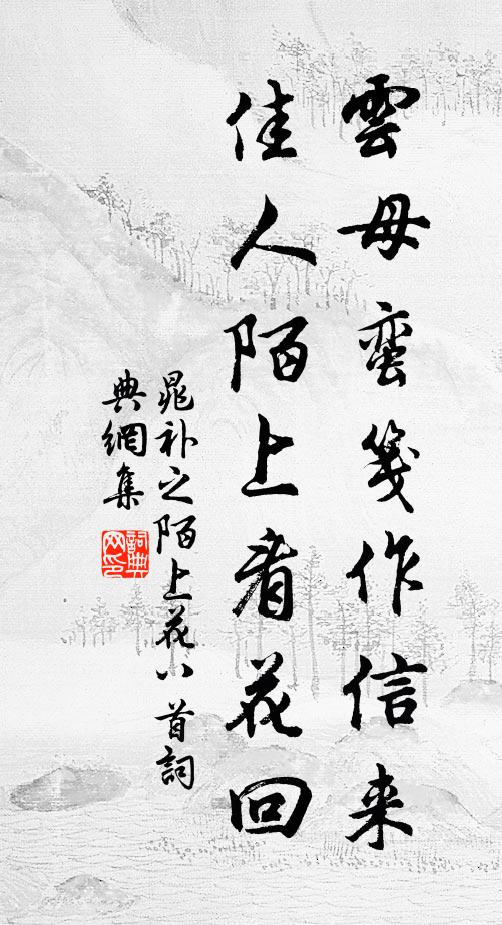 雲母蛮箋作信来
佳人陌上看花回
晁补之陌上花八首詞
典網集
詞典
网印